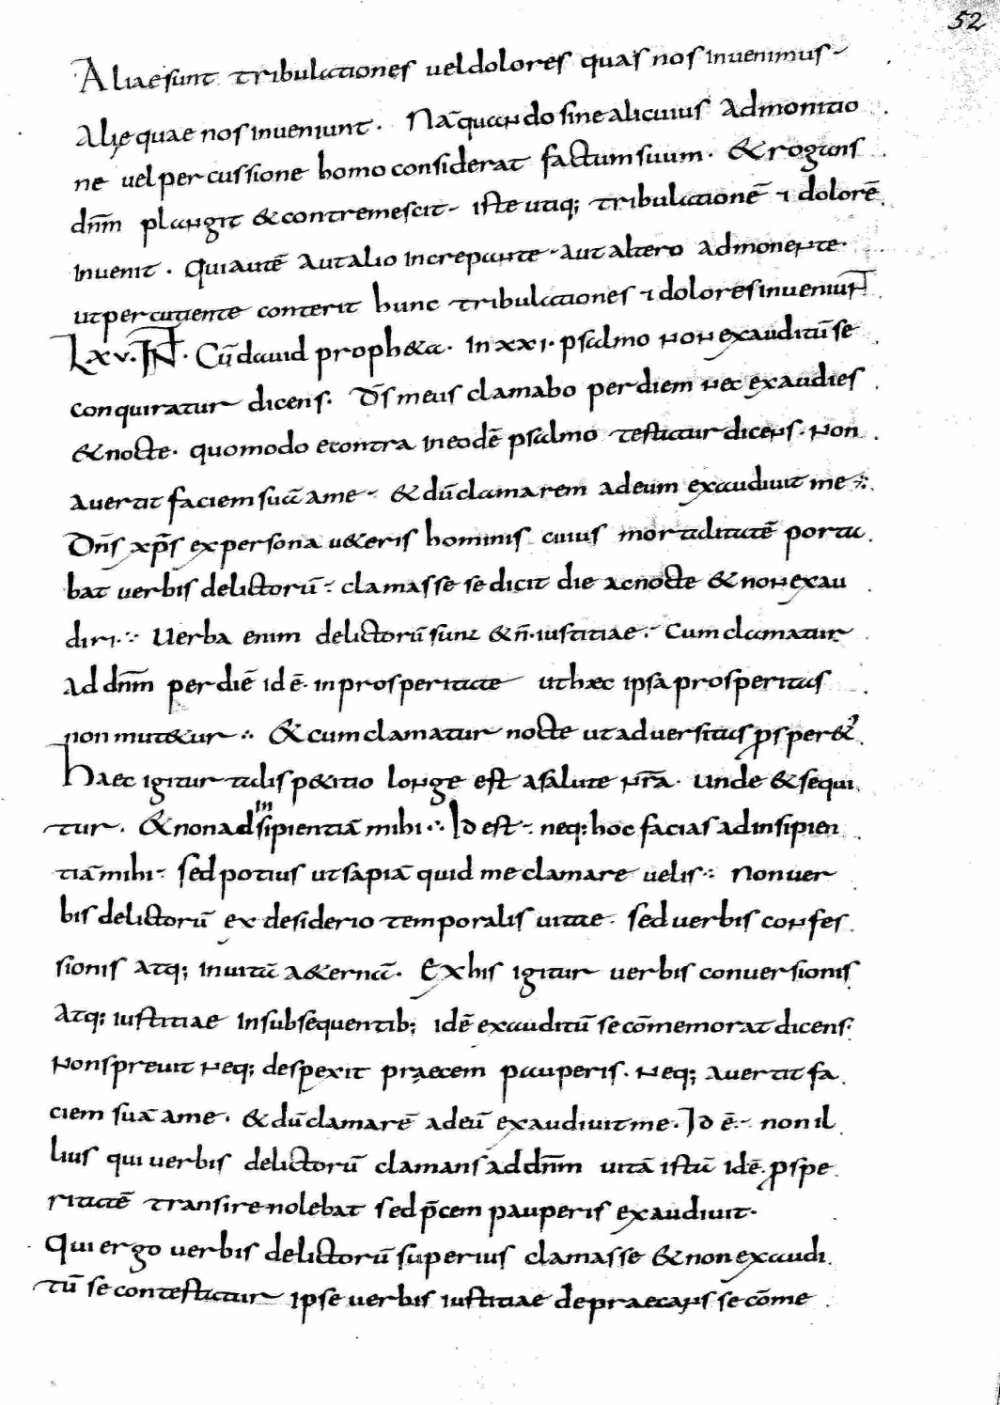 52
Aliae sunt tribulationes uel dolores quas nos inuenimus
Aliȩ quae nos inueniunt. Nā quando sine alicuius admonitio
ne uel percussione homo considerat factum suum. & rogans
dn̄m plangit & contremescit iste utiq; tribulationē ⁊ dolorē
inuenit. Qui autē aut alio increpante aut altero admonente.
ut percutiente conterit hunc tribulationes ⁊ dolores inueniunt
Lxv. INT. Cū dauid proph&a. in xxi. psalmo non exauditū se
conquiratur dicens. Ds̄ meus clamabo per diem nec exaudies
& nocte. quomodo econtra in eodē psalmo testatur dicens. non
auertit faciem suā a me & dū clamarem ad eum exaudiuit me
Dn̄s xp̄s ex persona u&eris hominis cuius mortalitatē porta
bat uerbis delictorū clamasse se dicit die ac nocte & non exau
diri. Uerba enim delictorū sunt & n̄ iustitiae. Cum clamatur
ad dn̄m per diē id ē. in prosperitate ut hæc ipsa prosperitas
non mut&ur & cum clamatur nocte ut aduersitas ꝓsper&ur
Haec igitur talis p&itio longe est a salute nr̄a. unde & sequi
tur. & non ad insipientiā mihi. Id est neq; hoc facias ad insipien
tiā mihi sed potius ut sapiā quid me clamare uelis non uer
bis delictorū ex desiderio temporalis uitae. sed uerbis confes
sionis atq; in uitā a&ernā. Ex his igitur uerbis conuersionis
atq; iustitiae in subsequentib; idē exauditū se cōmemorat dicens
Non spreuit neq; despexit praecem pauperis. neq; auertit fa
ciem suā a me. & dū clamarē ad eū exaudiuit me. Id ē non il
lius qui uerbis delictorū clamans ad dn̄m uitā istū idē. ꝓspe
ritatē transire nolebat sed p̄cem pauperis exaudiuit.
Qui ergo uerbis delictorū superius clamasse & non exaudi
tū se contestatur ipse uerbis iustitiae depraecans se cōme